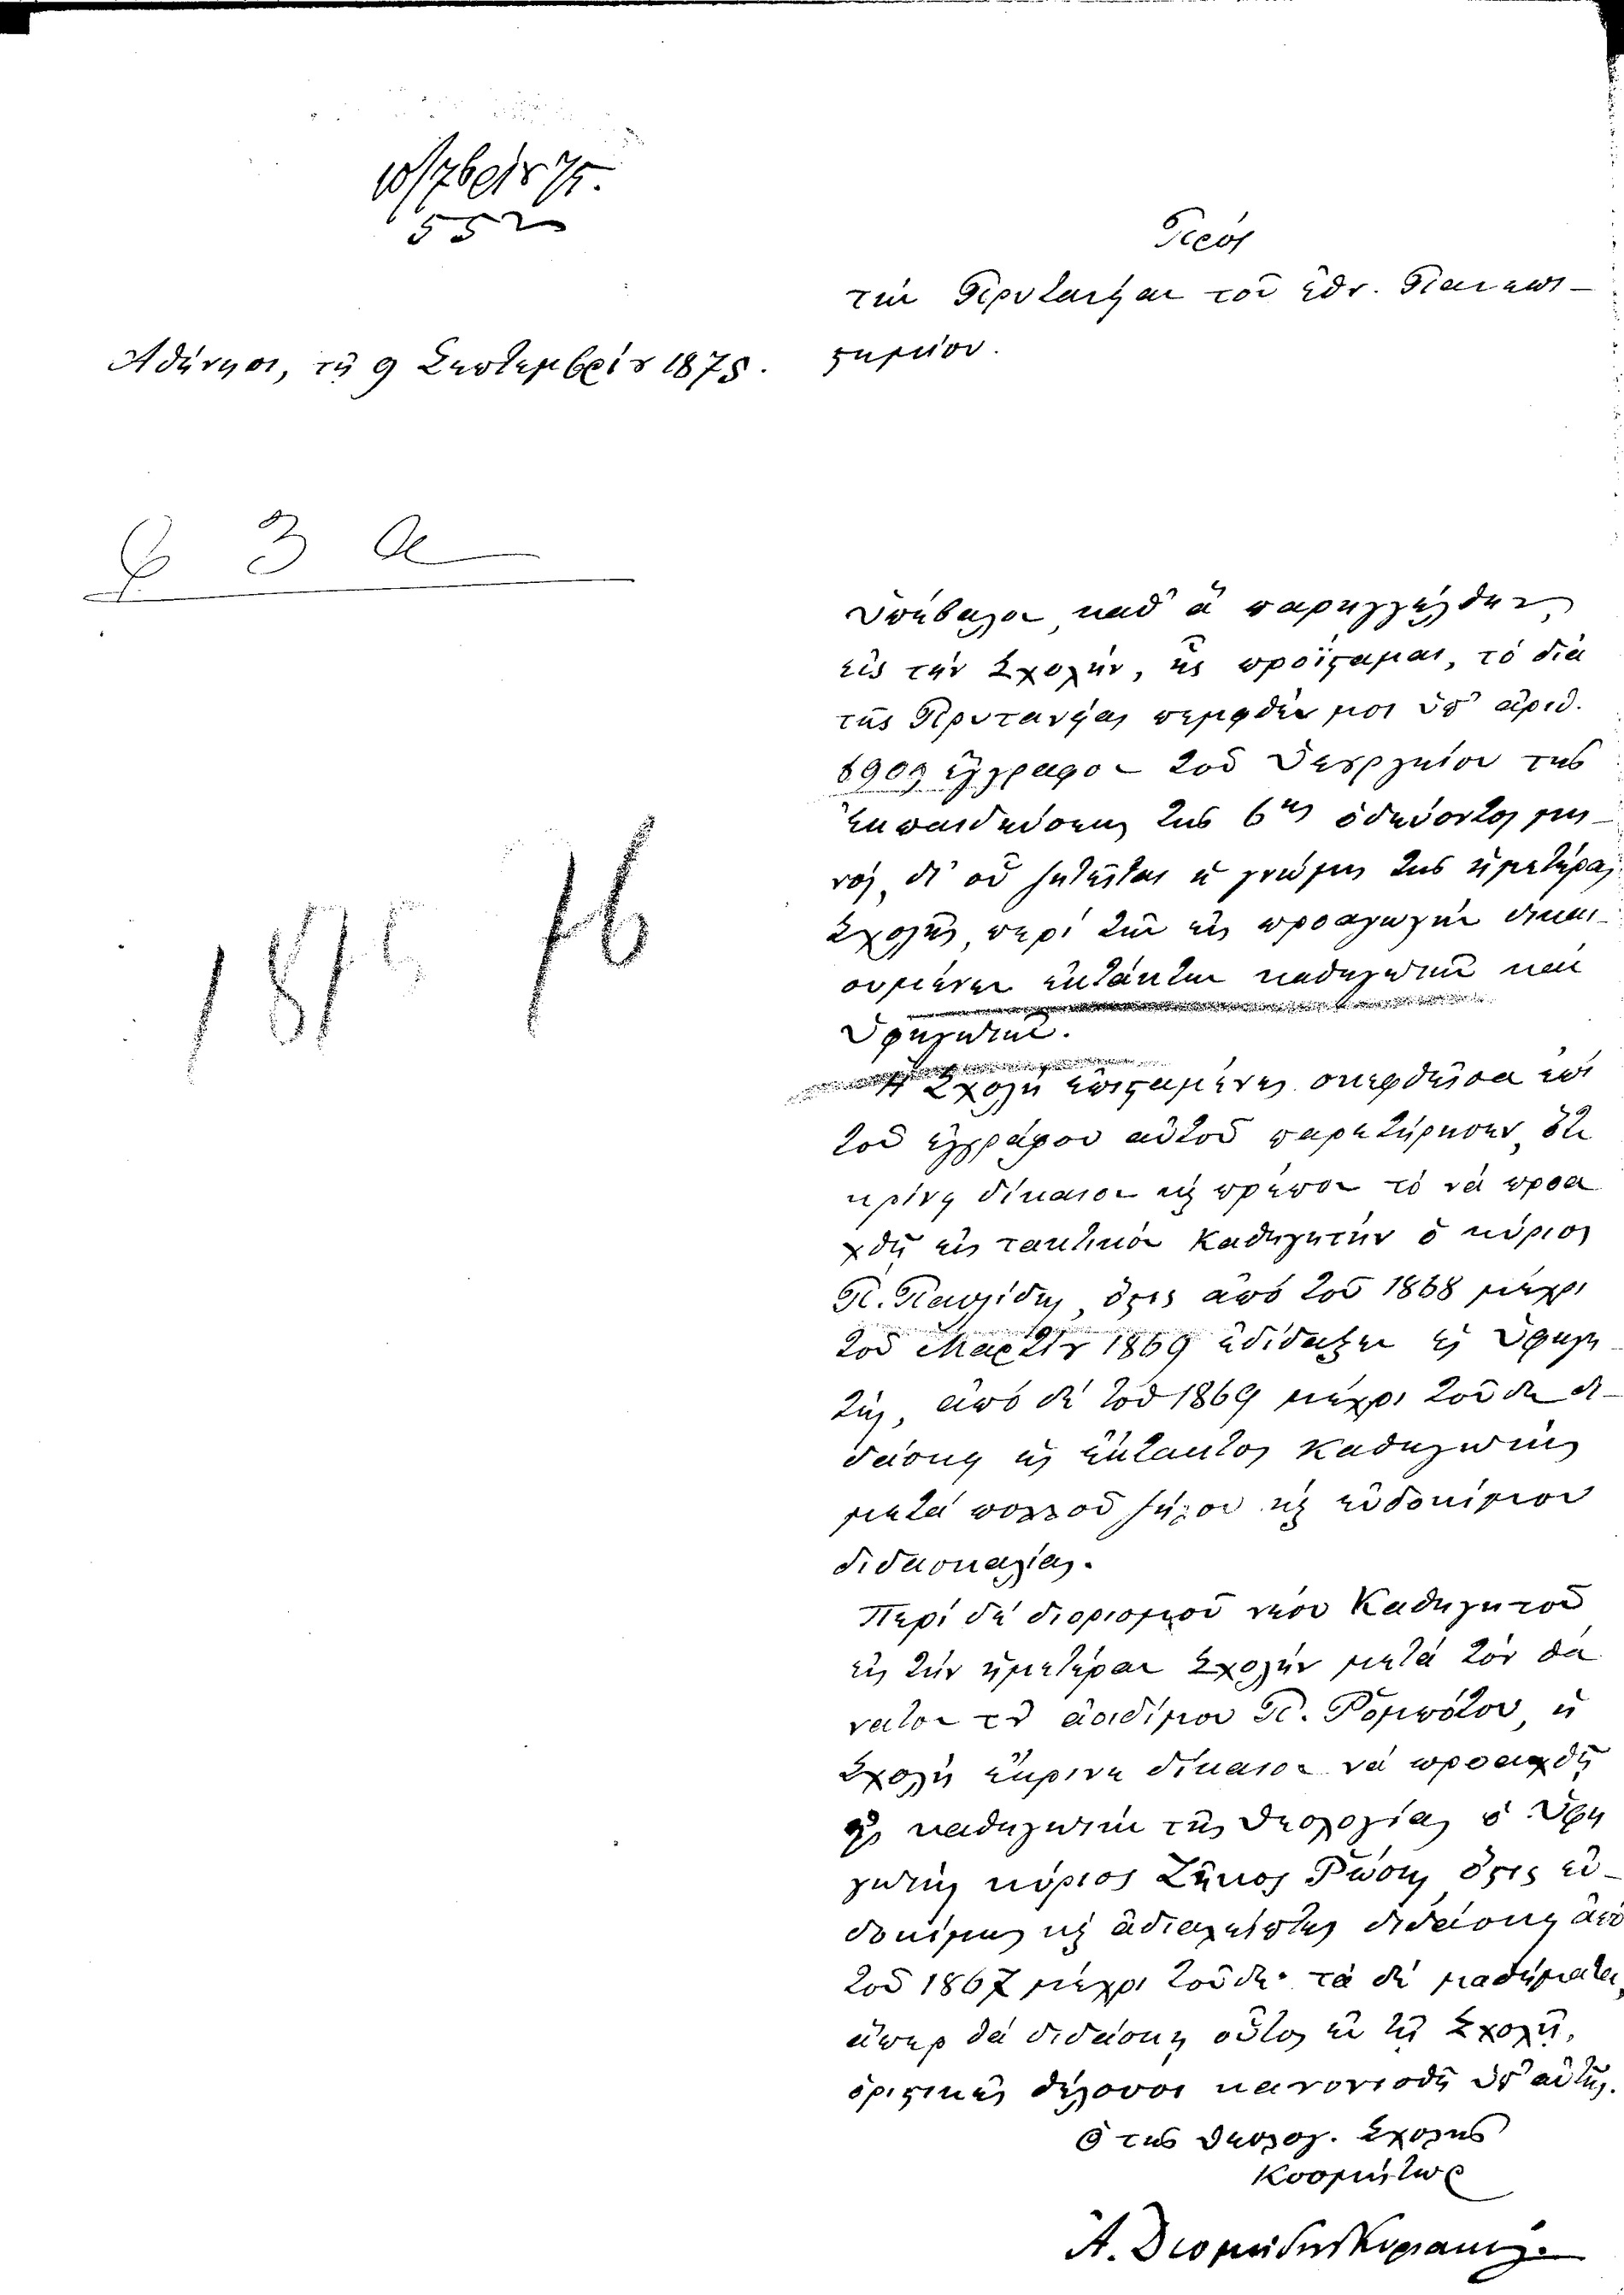 10/7βρίου 75.
552
Πρός
τὴν Πρυτανείαν τοῦ ἐθν. Πανεπι-
στημείου.
Ἀθήνησι, τῇ 9 Σεπτεμβρίου 1875.
φ 3 α
1875 76
Ὑπέβαλον, καθ' ἃ παρηγγέλθην,
εἰς τὴν Σχολήν, ἧς προΐσταμαι, τὸ διὰ
τῆς Πρυτανείας πεμφθέν μοι ὑπ' ἀριθ.
6909 ἔγγραφον τοῦ Ὑπουργείου τῆς
Ἐκπαιδεύσεως τῆς 6ης ὁδεύοντος μη-
νός, δι' οὗ ζητεῖται ἡ γνώμη τῆς ἡμετέρας
Σχολῆς περὶ τῶν εἰς προαγωγὴν δικαι-
ουμένων ἐκτάκτων καθηγητῶν καὶ
Ὑφηγητῶν.
Ἡ Σχολὴ ἐπισταμένως σκεφθεῖσα ἐπὶ
τοῦ ἐγγράφου αὐτοῦ παρετήρησεν, ὅτι
κρίνει δίκαιον κ̀ πρέπον τὸ νὰ προα
χθῇ εἰς τακτικὸν Καθηγητὴν ὁ κύριος
Π. Παυλίδης, ὅστις ἀπὸ τοῦ 1868 μέχρι
τοῦ Μαρτίου 1869 ἐδίδαξεν ὡς Ὑφηγη-
τής, ἀπὸ δὲ τοῦ 1869 μέχρι τοῦδε δι-
δάσκει ὡς ἔκτακτος Καθηγητὴς
μετὰ πολλοῦ ζήλου κ̀ εὐδοκίμου
διδασκαλίας.
Περὶ δὲ διορισμοῦ νέου Καθηγητοῦ
εἰς τὴν ἡμετέραν Σχολὴν μετὰ τὸν θά
νατον τοῦ ἀοιδίμου Π. Ῥομπότου, ἡ
Σχολὴ ἔκρινε δίκαιον νὰ προαχθῇ
ὡς καθηγητὴς τῆς Θεολογίας ὁ Ὑφη
γητὴς κύριος Ζῆκος Ῥώσης, ὅστις εὐ-
δοκίμως κ̀ ἀδιαλείπτως διδάσκει ἀπὸ
τοῦ 1867 μέχρι τοῦδε· τὰ δὲ μαθήματα,
ἅπερ θὰ διδάσκῃ οὗτος ἐν τῇ Σχολῇ,
ὁριστικῶς θέλουσι κανονισθῆ ὑπ' αὐτῆς.
Ὁ τῆς Θεολογ. Σχολῆς
Κοσμήτωρ
Ἀ. Διομήδης Κυριακός.